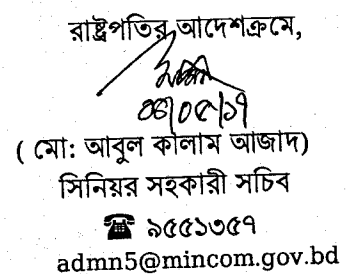 রাষ্ট্রপতির আদেশক্রমে,
( মো: আবুল কালাম আজাদ)
সিনিয়র সহকারী সচিব
☎ ৯৫৫১৩৫৭
admn5@mincom.gov.bd